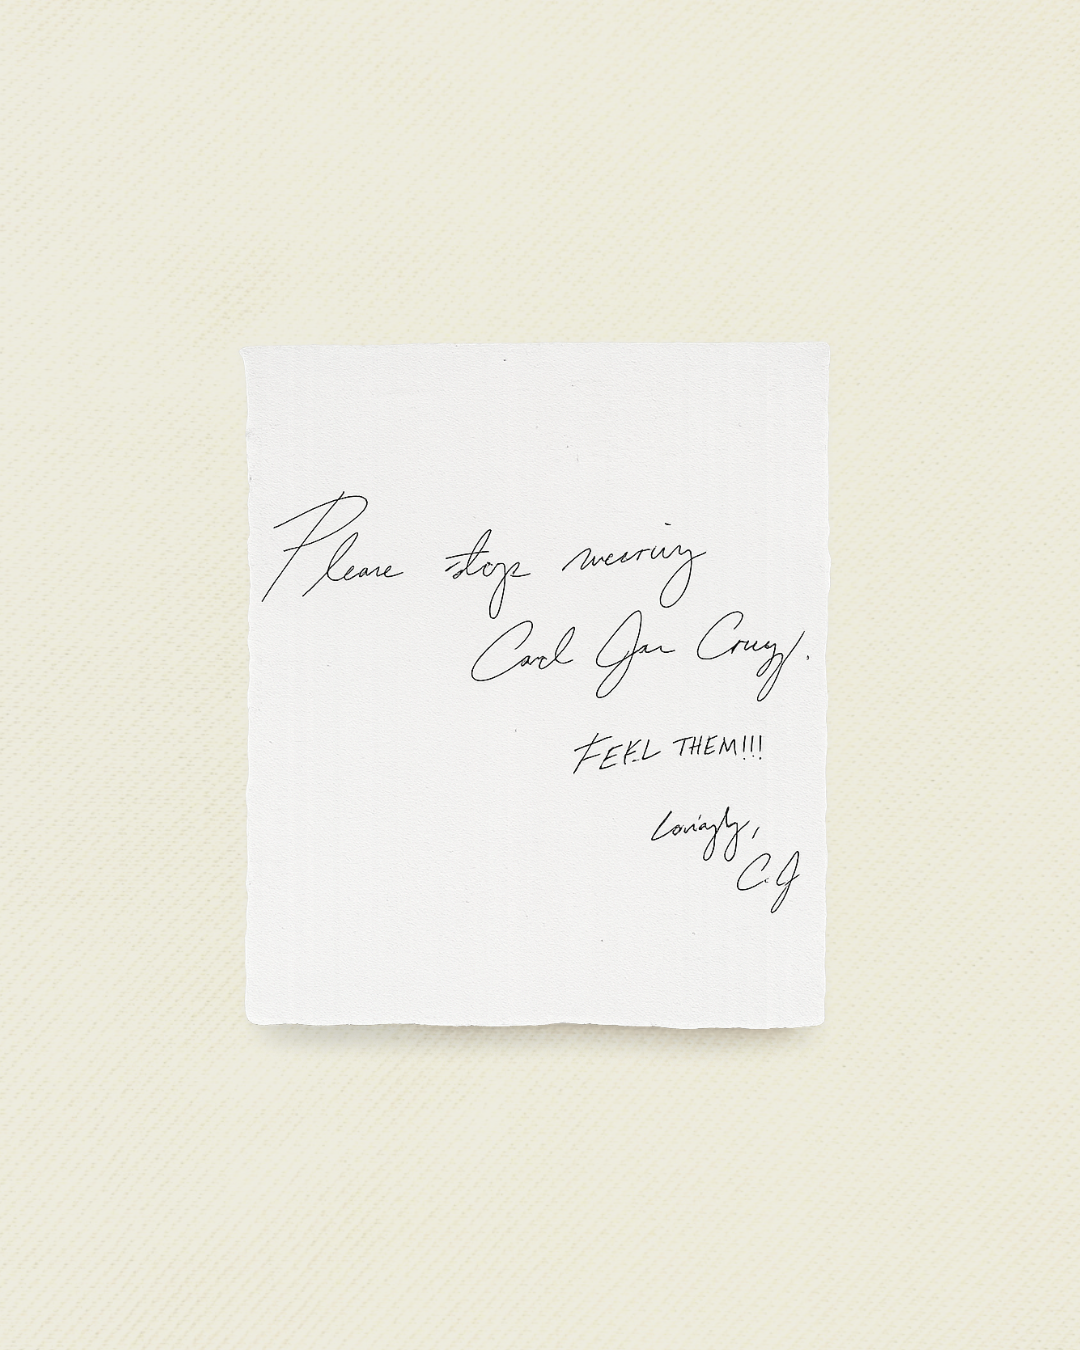 Please stop wearing
Carl Jan Cruz.
FEEL THEM!!!
Lovingly,
C.J